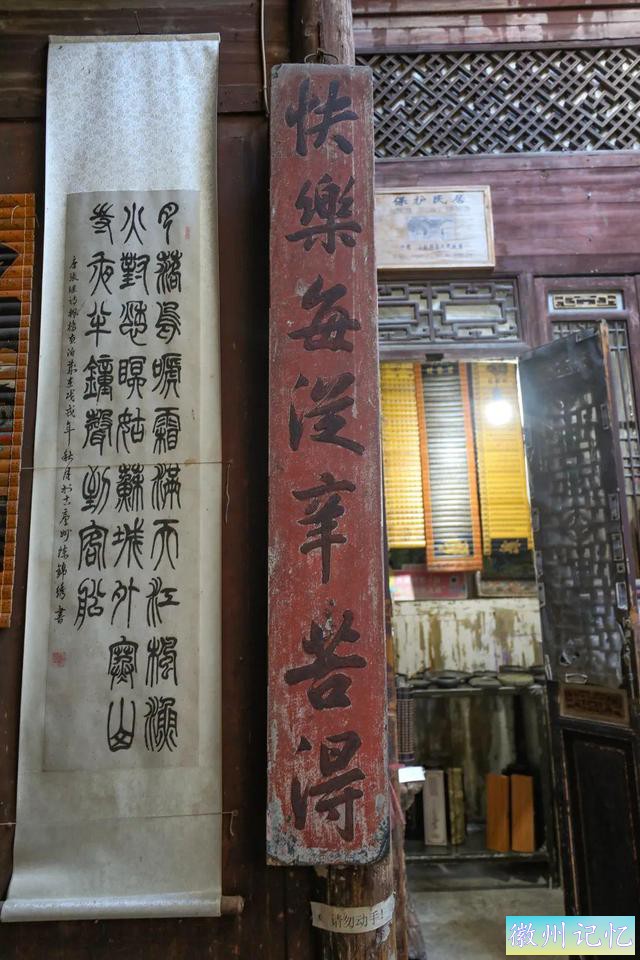 月落烏啼霜滿天江楓漁
火對愁眠姑蘇城外寒山
寺夜半鐘聲到客船
唐張繼詩楓橋夜泊歲在戊戌年秋月於古陳錦綉書
快樂每從辛苦得
保护民居
请勿动手!
徽州记忆